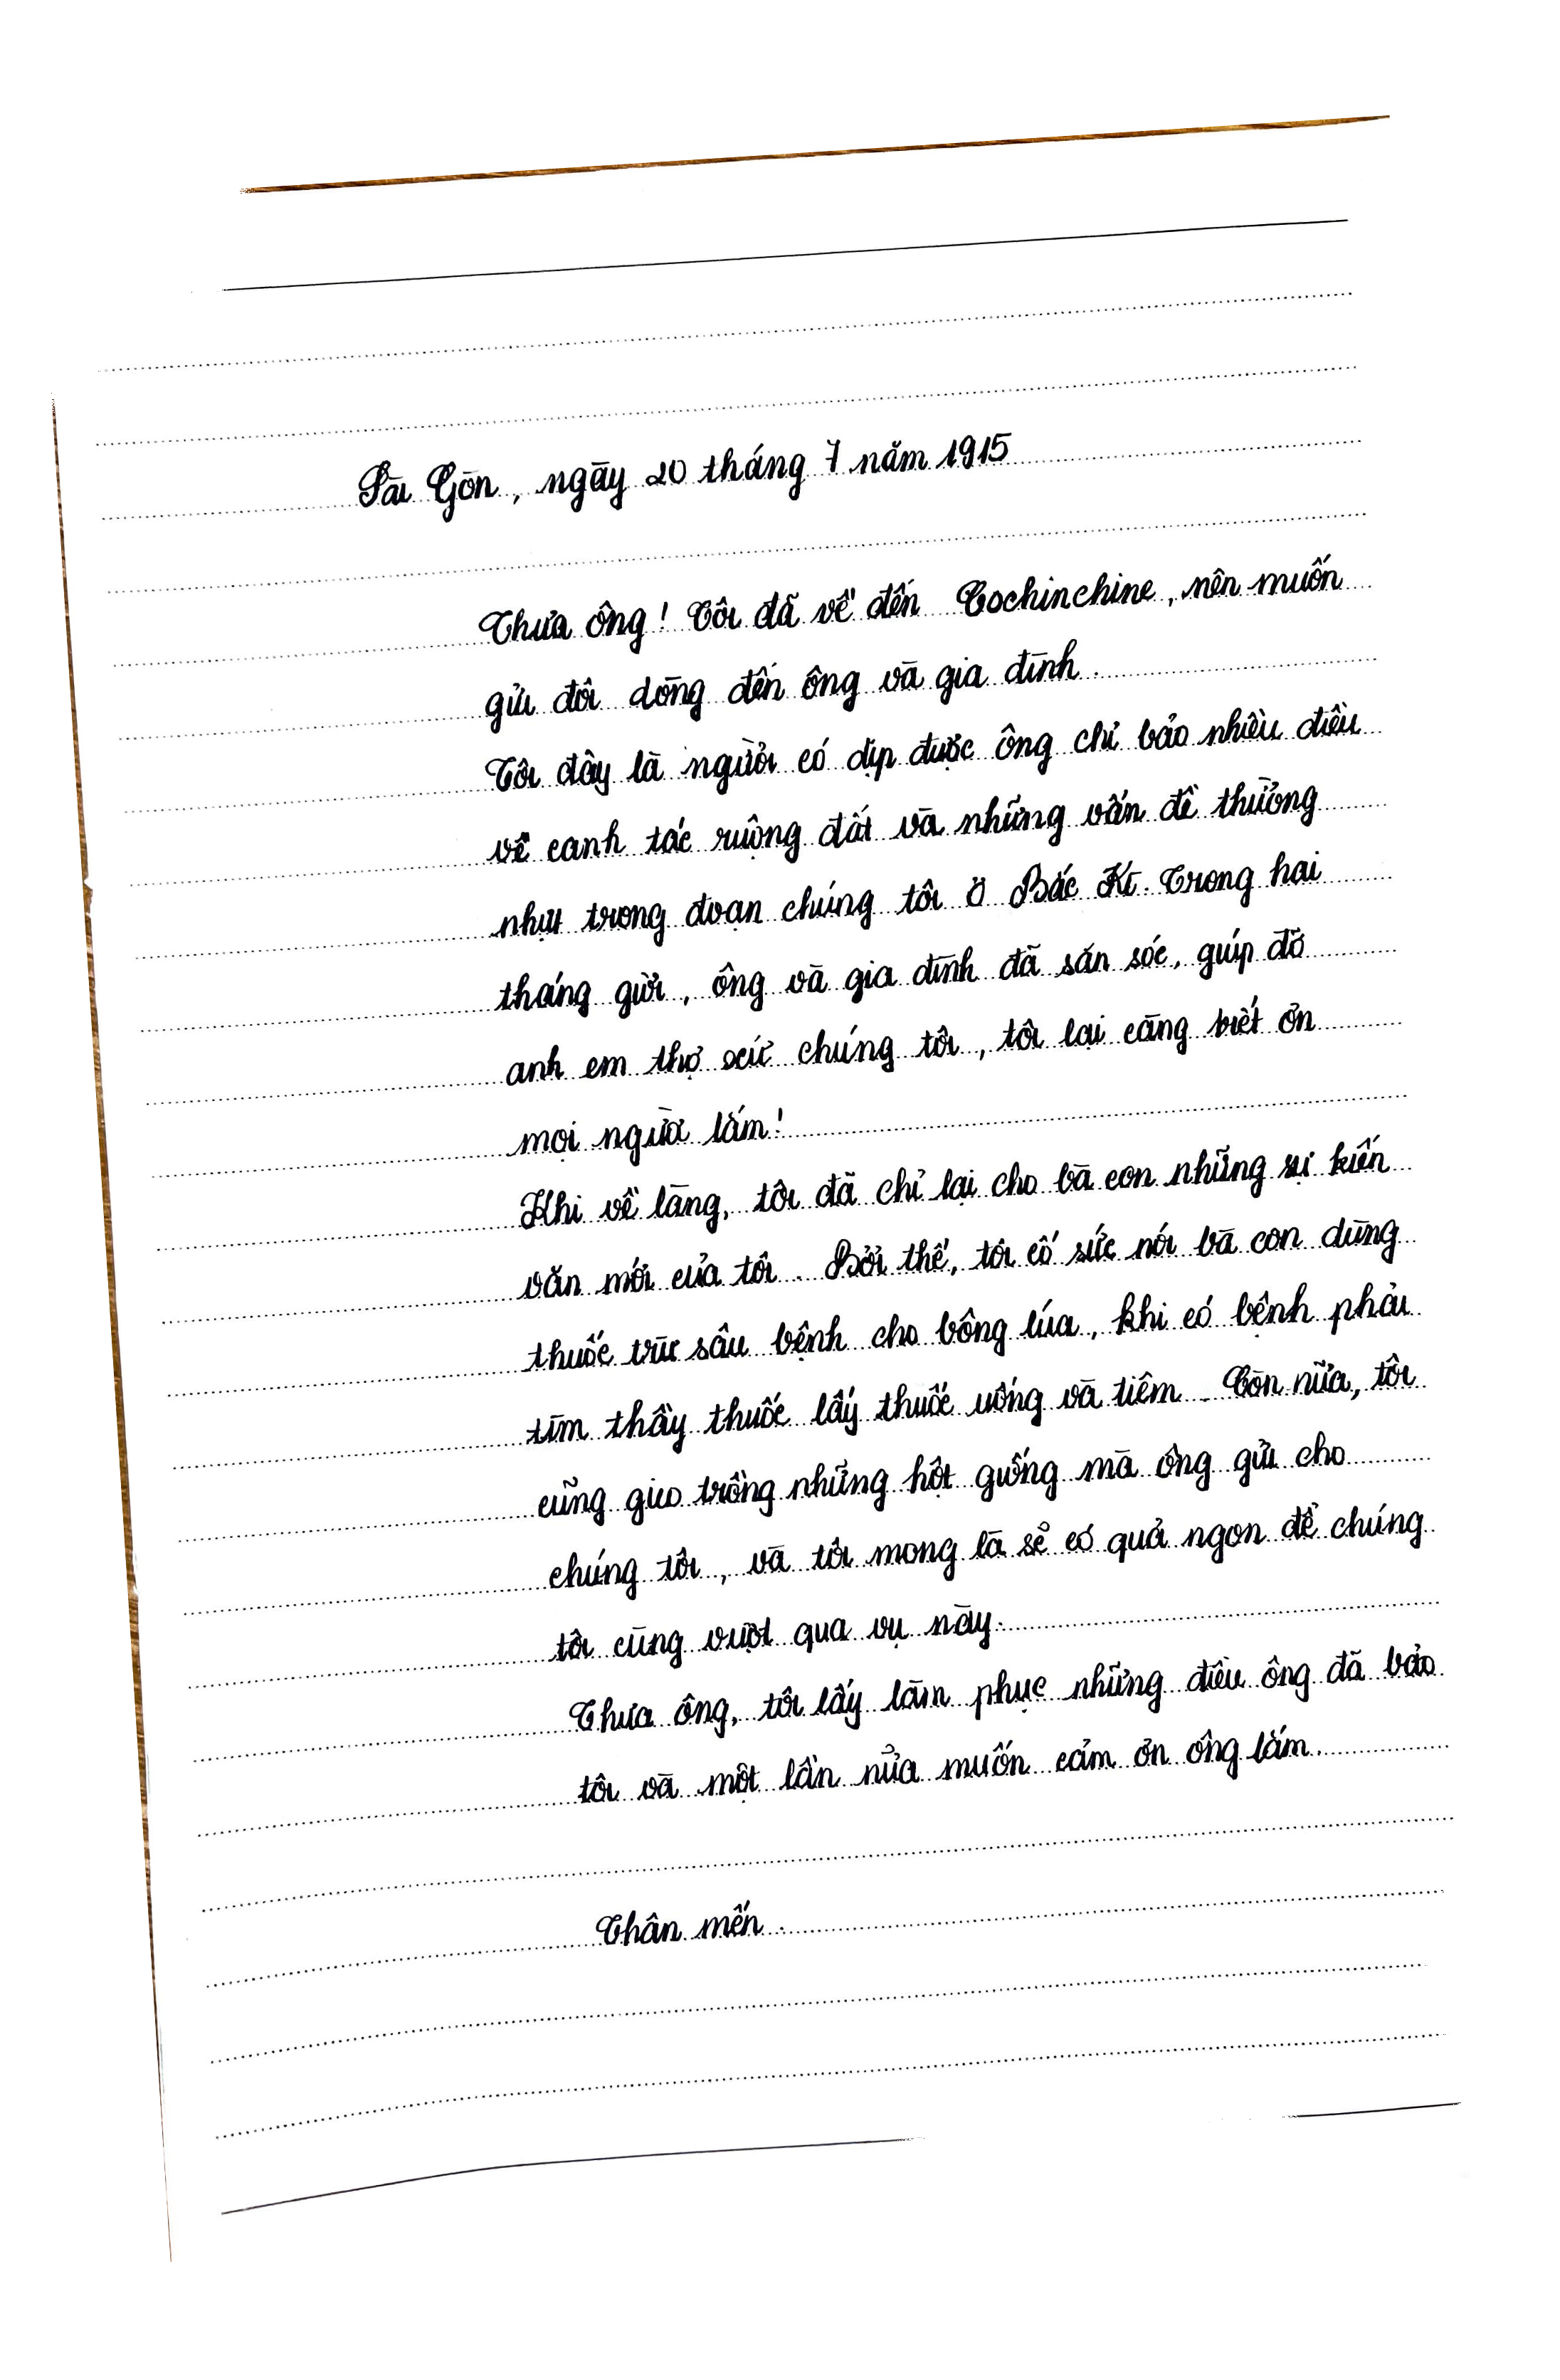 Sài Gòn, ngày 20 tháng 7 năm 1915
Thưa ông! Tôi đã về đến Cochinchine, nên muốn
gửi đôi dòng đến ông và gia đình.
Tôi đây là người có dịp được ông chỉ bảo nhiều điều
về canh tác ruộng đất và những vấn đề thường
nhựt trong đoạn chúng tôi ở Bắc Kì. Trong hai
tháng giời, ông và gia đình đã săn sóc, giúp đỡ
anh em thợ xứ chúng tôi, tôi lại càng biết ơn
mọi người lắm!
Khi về làng, tôi đã chỉ lại cho bà con những sự kiến
văn mới của tôi. Bởi thế, tôi cố sức nói bà con dùng
thuốc trừ sâu bệnh cho bông lúa, khi có bệnh phải
tìm thầy thuốc lấy thuốc uống và tiêm. Còn nữa, tôi
cũng gieo trồng những hột giống mà ông gửi cho
chúng tôi, và tôi mong là sẽ có quả ngon để chúng
tôi cùng vượt qua vụ này.
Thưa ông, tôi lấy làm phục những điều ông đã bảo
tôi và một lần nữa muốn cảm ơn ông lắm.
Thân mến.